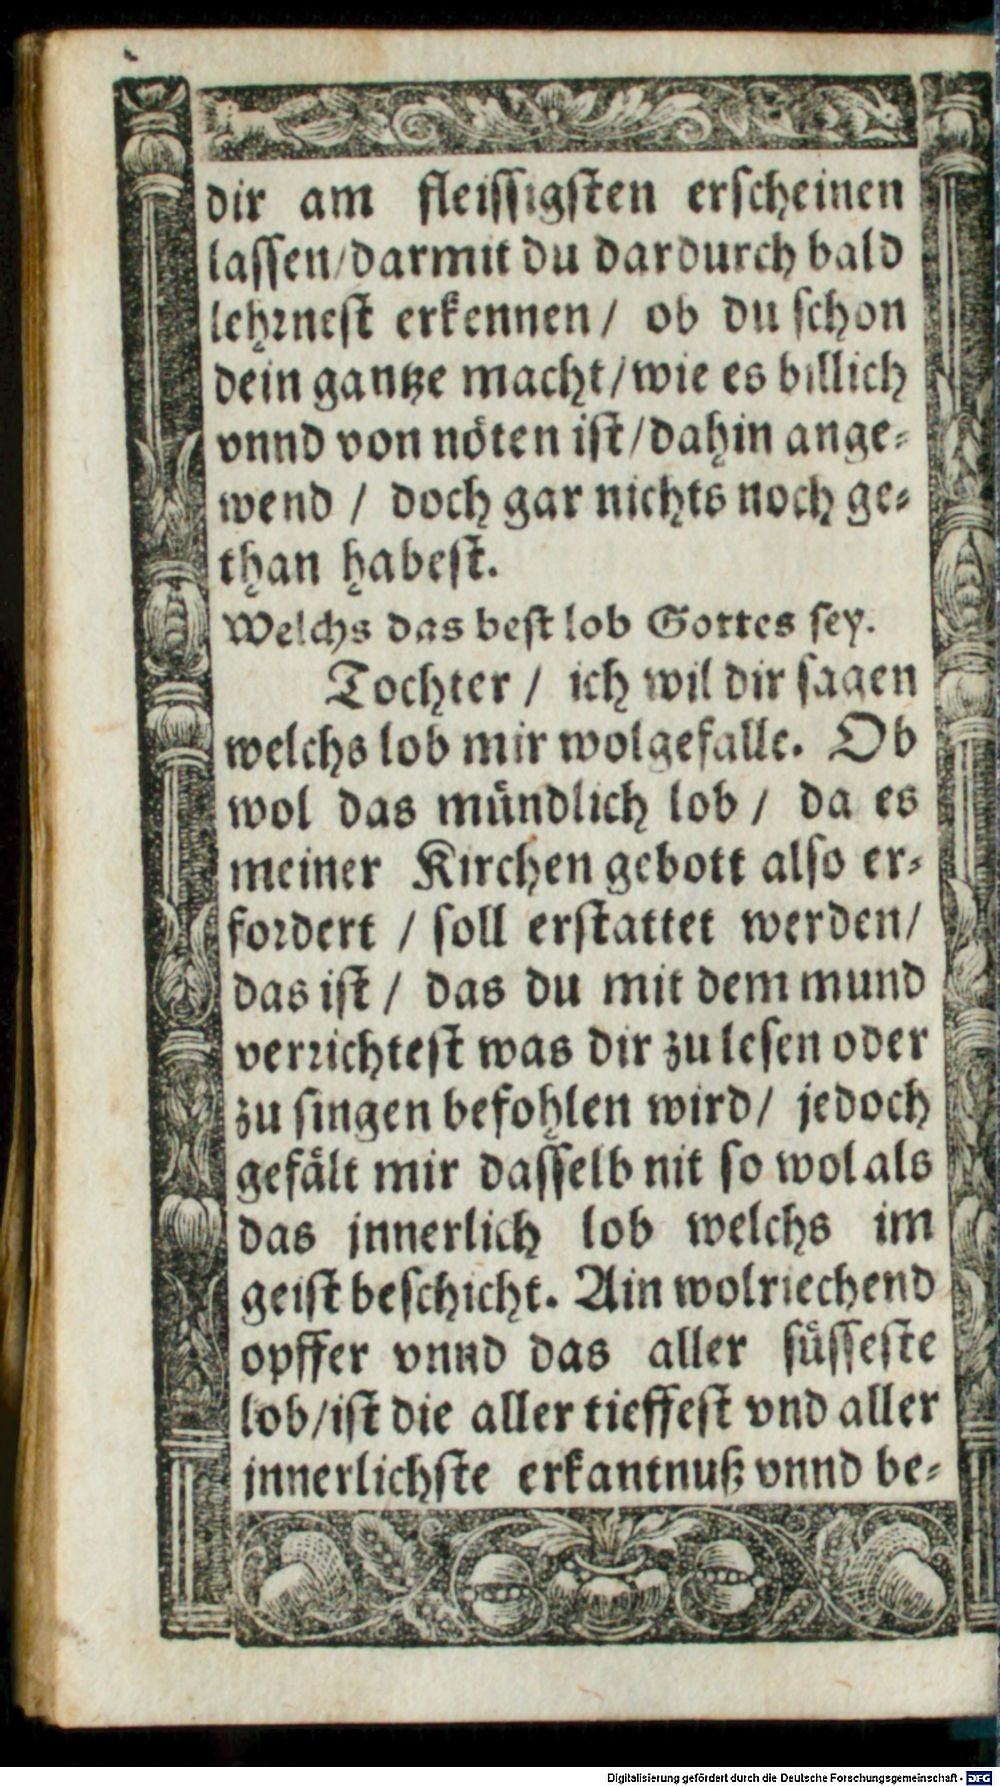 dir am fleissigsten erscheinen
lassen/darmit du dardurch bald
lehrnest erkennen/ ob du schon
dein gantze macht/wie es billich
vnnd von nöten ist/dahin ange-
wend / doch gar nichts noch ge-
than habest.
Welchs das best lob Gottes sey.
Tochter / ich wil dir sagen
welchs lob mir wolgefalle. Ob
wol das mündlich lob / da es
meiner Kirchen gebott also er-
fordert / soll erstattet werden/
das ist / das du mit dem mund
verrichtest was dir zu lesen oder
zu singen befohlen wird/ jedoch
gefält mir dasselb nit so wol als
das jnnerlich lob welchs im
geist beschicht. Ain wolriechend
opffer vnnd das aller süsseste
lob/ist die aller tieffest vnd aller
jnnerlichste erkantnuß vnnd be-
Digitalisierung gefördert durch die Deutsche Forschungsgemeinschaft - DFG